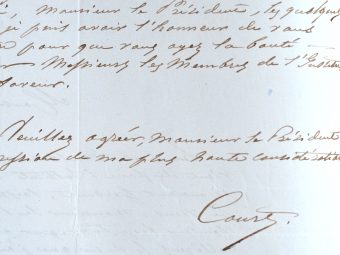 , Monsieur le Président, les quelques
je puis avoir l'honneur de vous
pour que vous ayez la bonté
Messieurs les Membres de l'Institut
faveur.
Veuillez agréer, Monsieur le Président
ression de ma plus haute considération
Court.